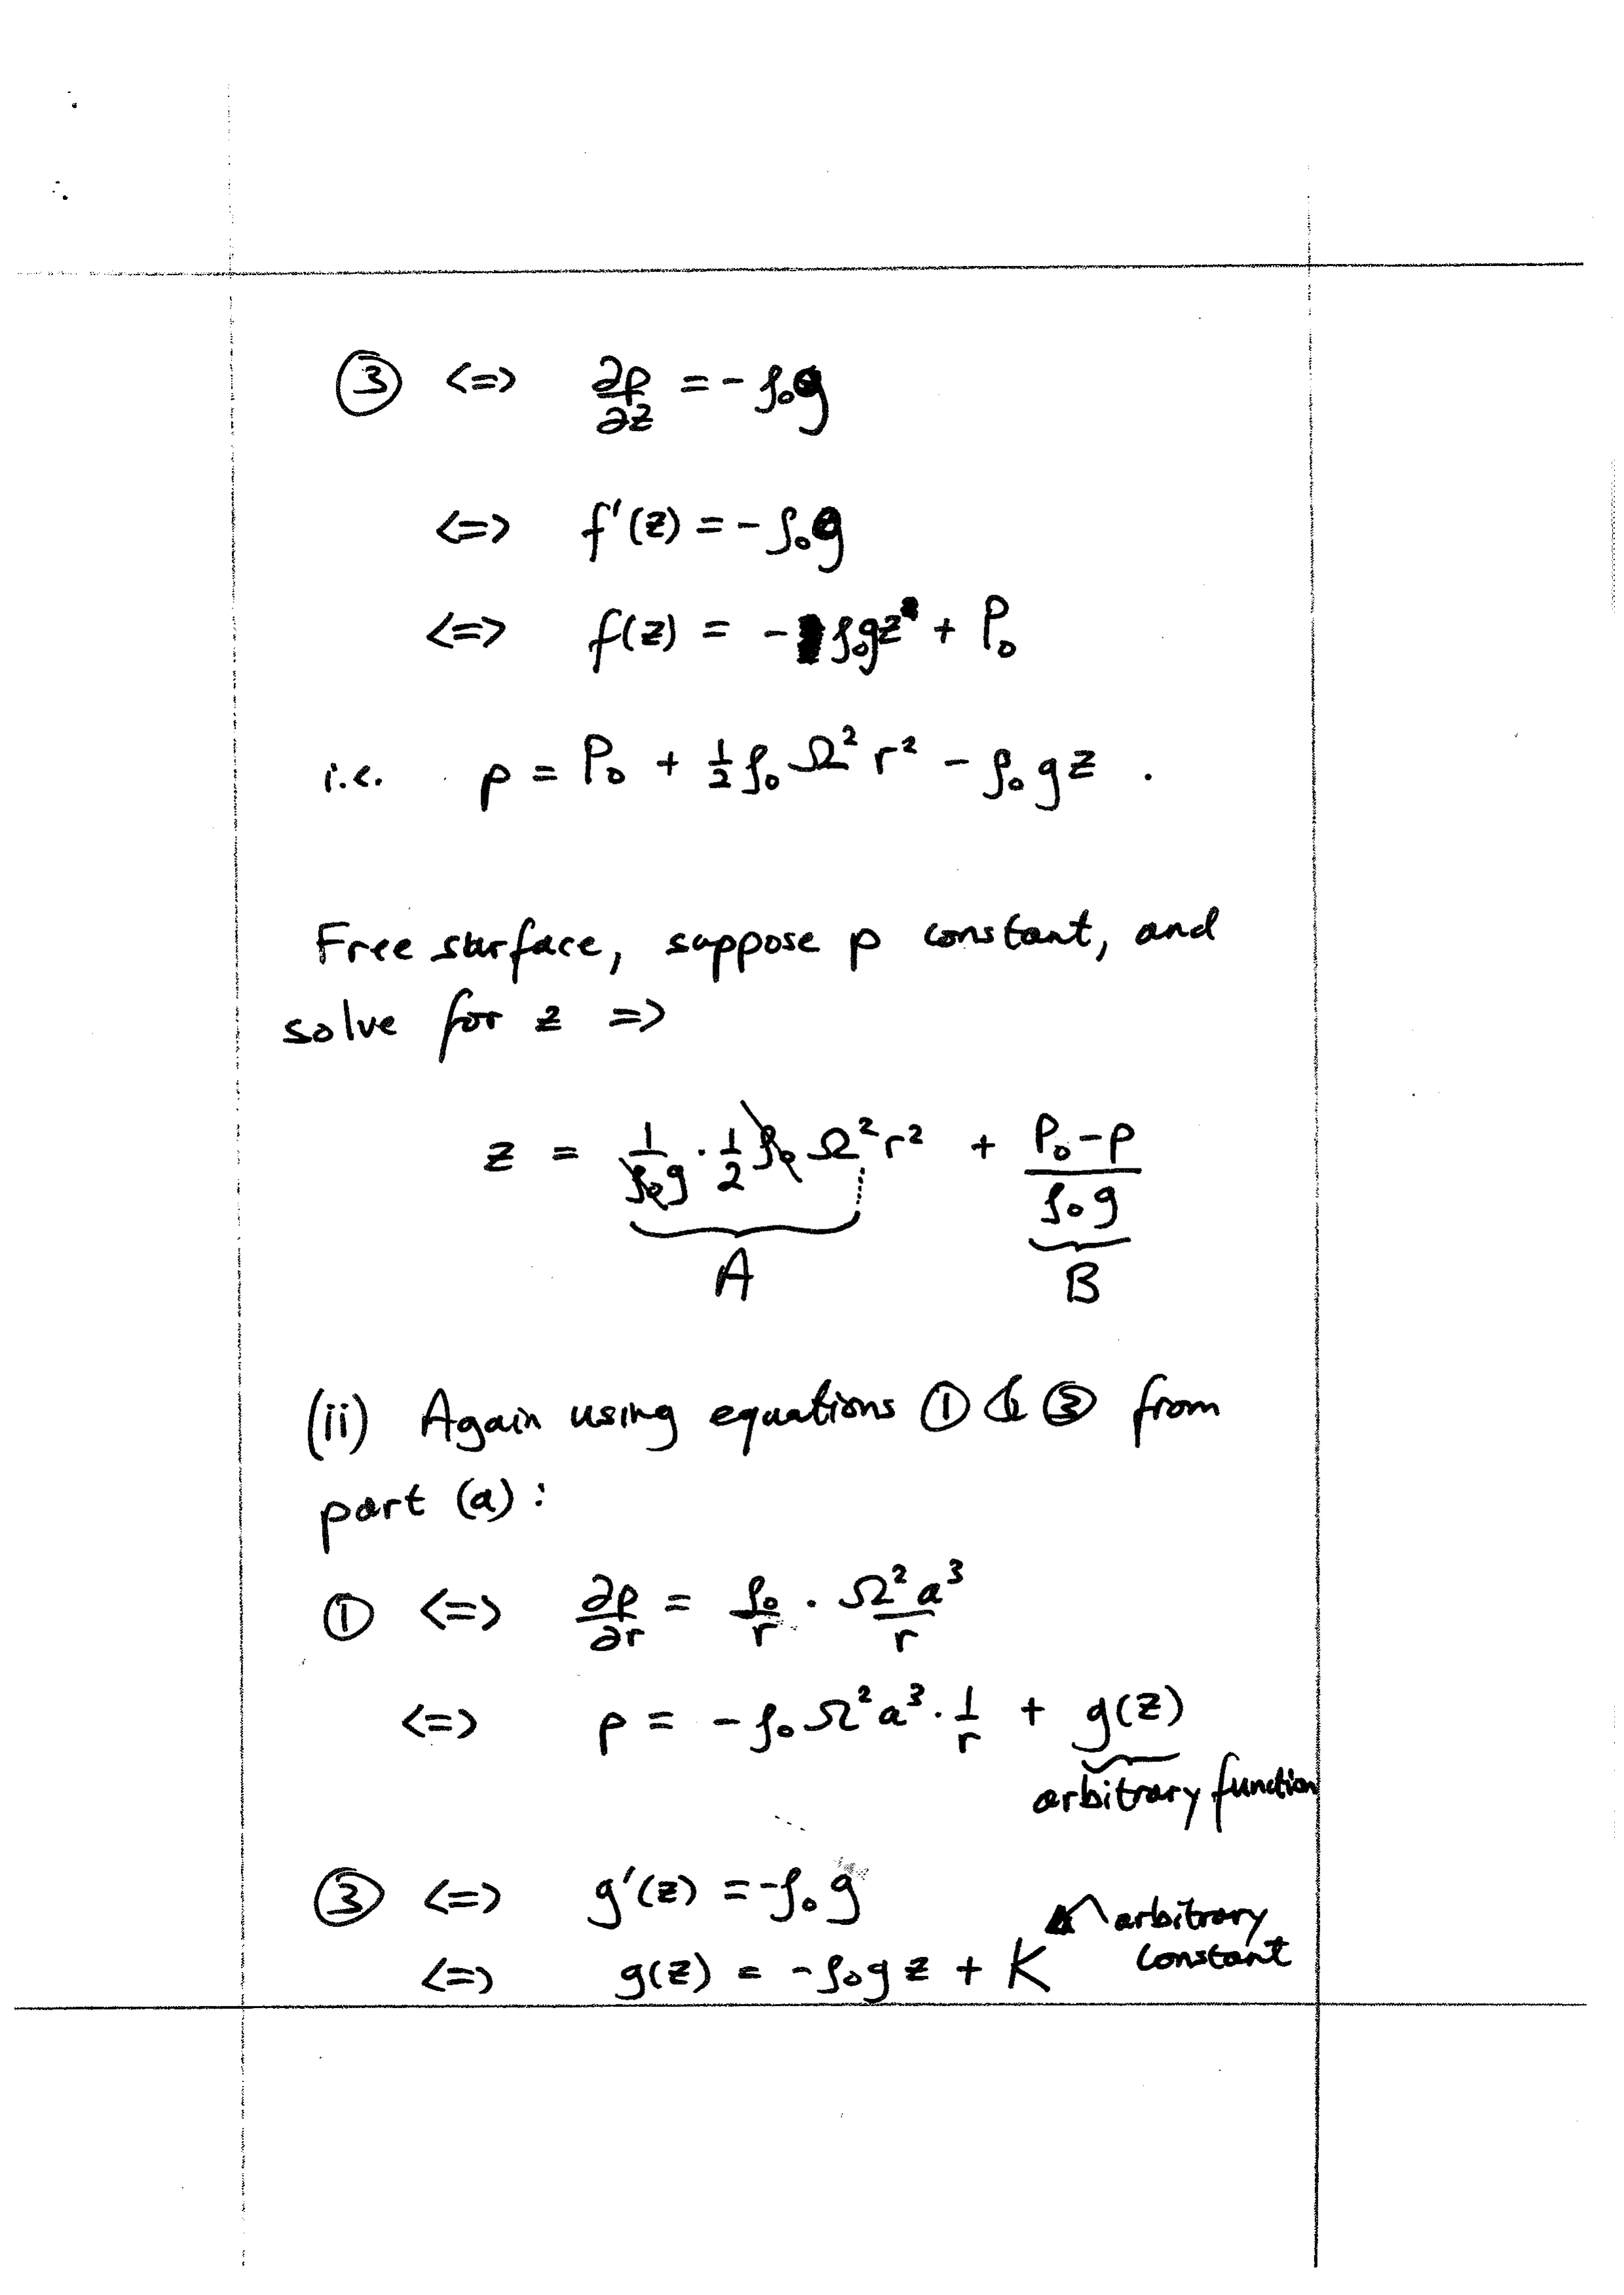 ③ <=> ∂p/∂z = - ρ₀g
<=> f'(z) = - ρ₀g
<=> f(z) = - ρ₀gz + P₀
i.e. p = P₀ + ½ρ₀Ω²r² - ρ₀gz .
Free surface, suppose p constant, and
solve for z =>
z = 1/(ρ₀g) · ½ρ₀Ω²r² + (P₀-p)/(ρ₀g)
A B
(ii) Again using equations ① & ③ from
part (a):
① <=> ∂p/∂r = ρ₀/r · Ω²a³/r
<=> p = - ρ₀Ω²a³· 1/r + g(z)
arbitrary function
③ <=> g'(z) = -ρ₀g
arbitrary
constant
<=> g(z) = -ρ₀gz + K